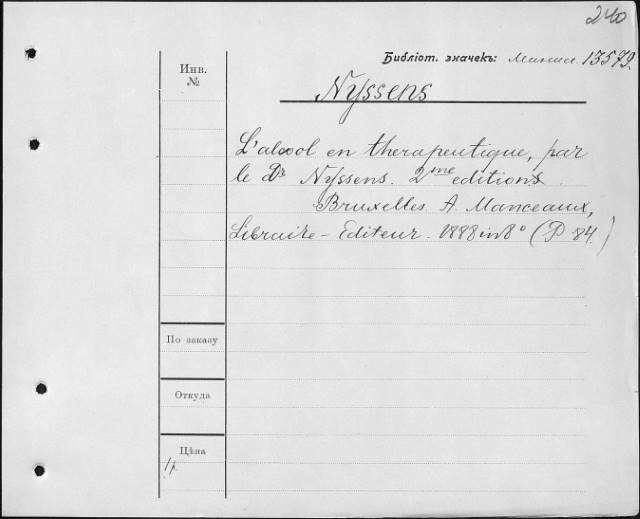 240
Библіот. значекъ: 13579.
Инв.
№
Nyssens
L'alcool en therapeutique, par
le Dr Nyssens. 2me editions.
Bruxelles. A. Manceaux,
Libraire-Editeur. 1888 in 8° (P 84)
По заказу
Откуда
Цѣна